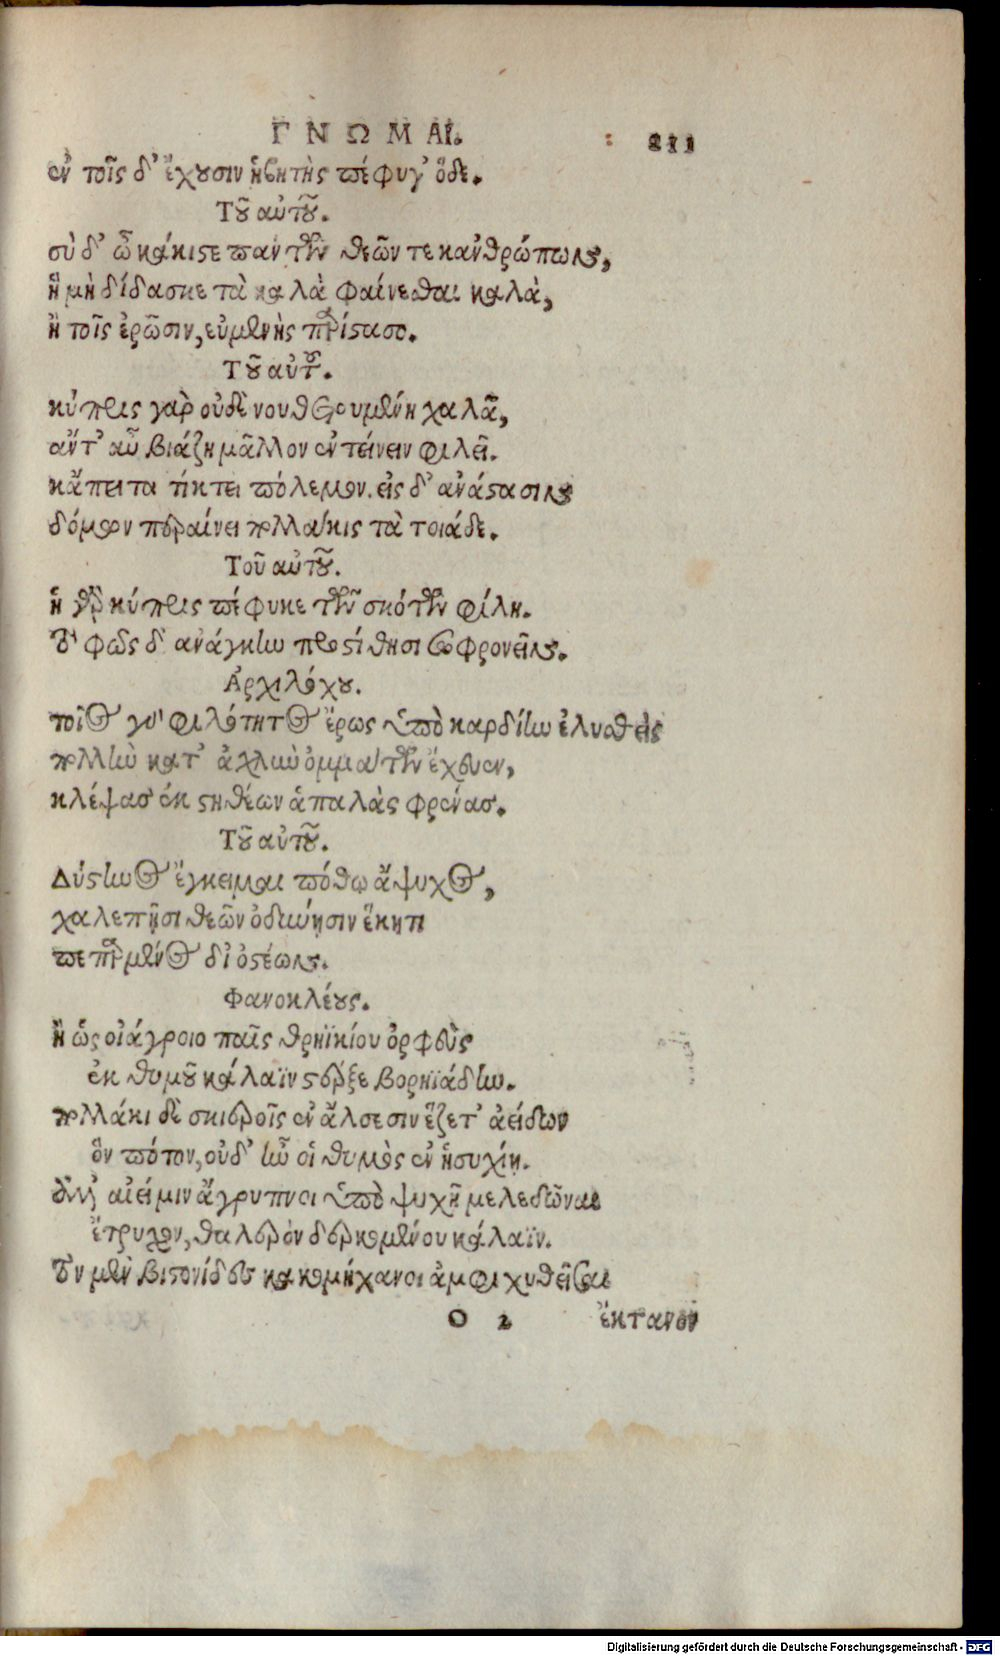 ΓΝΩΜΑΙ. 211
ἐν τοῖς δ' ἔχουσιν ἡβητὴς πέφυχ' ὅδε.
Τοῦ αὐτοῦ.
σὺ δ' ὦ κάκιστε πάντων θεῶν τε κἀνθρώπων,
ἢ μὴ δίδασκε τὰ καλὰ φαίνεσθαι καλὰ,
ἢ τοῖς ἐρῶσιν, εὐμενὴς παρίστασο.
Τοῦ αὐτοῦ.
κύπρις γὰρ οὐδὲ νουθετουμένη χαλᾶ,
ἄντ' αὖ βιάζῃ μᾶλλον ἐντείνειν φιλεῖ.
κἄπειτα τίκτει πόλεμον. εἰς δ' ἀνάστασιν
δόμων περαίνει πολλάκις τὰ τοιάδε.
Τοῦ αὐτοῦ.
ἡ γὰρ κύπρις πέφυκε τῶν σκότων φίλη.
τὸ φῶς δ' ἀνάγκην προστίθησι σωφρονεῖν.
Ἀρχιλόχου.
τοῖος γὸ φιλότητος ἔρως ὑπὸ καρδίην ἐλυσθεὶς
πολλὴν κατ' ἀχλὺν ὀμμάτων ἔχευεν,
κλέψας ἐκ στηθέων ἁπαλὰς φρένας.
Τοῦ αὐτοῦ.
Δύστηνος ἔγκειμαι πόθῳ ἄψυχος,
χαλεπῇσι θεῶν ὀδύνῃσιν ἕκητι
πεπαρμένος δι' ὀστέων.
Φανοκλέους.
ἢ ὡς οἰάγροιο παῖς θρηϊκίου ὀρφεὺς
ἐκ θυμοῦ κάλαϊν στέρξε βορηϊάδην.
πολλάκι δὲ σκιεροῖς ἐν ἄλσεσιν ἕζετ' ἀείδων
ὃν πότον, οὐδ' ἦν οἱ θυμὸς ἐν ἡσυχίῃ.
ἀλλ' αἰεί μιν ἄγρυπνοι ὑπὸ ψυχῇ μελεδῶναι
ἔτρυχον, θαλερὸν δερκομένου κάλαϊν.
τὸν μὲν βιστονίδες κακομήχανοι ἀμφιχυθεῖσαι
O 2 ἔκτανον
Digitalisierung gefördert durch die Deutsche Forschungsgemeinschaft - DFG